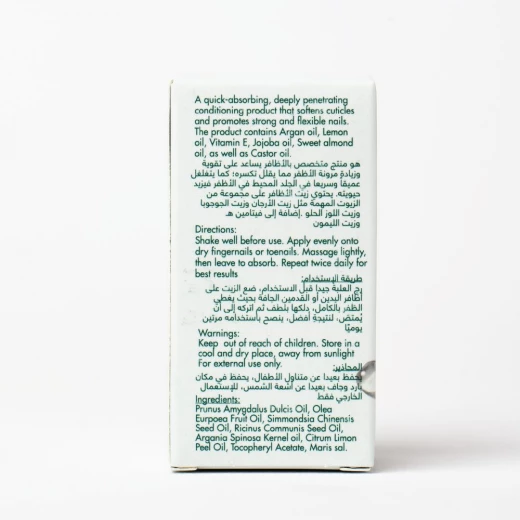 A quick-absorbing, deeply penetrating
conditioning product that softens cuticles
and promotes strong and flexible nails.
The product contains Argan oil, Lemon
oil, Vitamin E, Jojoba oil, Sweet almond
oil, as well as Castor oil.
هو منتج متخصص بالأظافر يساعد على تقوية
وزيادة مرونة الأظفر مما يقلل تكسره؛ كما يتغلغل
عميقا وسريعا في الجلد المحيط في الأظفر فيزيد
حيويته. يحتوي زيت الأظافر على مجموعة من
الزيوت المهمة مثل زيت الأرجان وزيت الجوجوبا
وزيت اللوز الحلو .إضافة إلى فيتامين هـ
وزيت الليمون
Directions:
Shake well before use. Apply evenly onto
dry fingernails or toenails. Massage lightly,
then leave to absorb. Repeat twice daily for
best results
طريقة الإستخدام:
رج العلبة جيدا قبل الاستخدام، ضع الزيت على
أظافر اليدين أو القدمين الجافة بحيث يغطي
الظفر بالكامل، دلكها بلطف ثم اتركه إلى أن
يُمتص، لنتيجة أفضل، ينصح باستخدامه مرتين
يوميًا
Warnings:
Keep out of reach of children. Store in a
cool and dry place, away from sunlight
For external use only.
المحاذير:
يحفظ بعيدا عن متناول الأطفال، يحفظ في مكان
بارد وجاف بعيدا عن أشعة الشمس، للإستعمال
الخارجي فقط
Ingredients:
Prunus Amygdalus Dulcis Oil, Olea
Eurpoea Fruit Oil, Simmondsia Chinensis
Seed Oil, Ricinus Communis Seed Oil,
Argania Spinosa Kernel oil, Citrum Limon
Peel Oil, Tocopheryl Acetate, Maris sal.